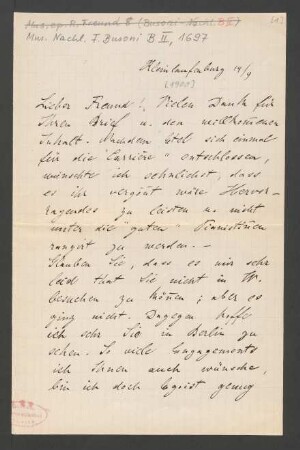 Mus. ep. R. Freund 8 (Busoni-Nachl. B II)
Mus. Nachl. F. Busoni B II, 1697
Kleinlaufenburg 14/9
[1900]
Lieber Freund! Vielen Dank für
Ihren Brief u. den willkommenen
Inhalt. Nachdem Etel sich einmal
für die "Carrière" entschlossen,
wünschte ich sehnlichst, dass
es ihr vergönt wäre Hervor-
ragendes zu leisten u. nicht
unter die "guten" Pianistinen
rangirt zu werden. –
Glauben Sie, dass es mir sehr
leid that Sie nicht in W.
besuchen zu können; aber es
ging nicht. Dagegen hoffe
ich sehr Sie in Berlin zu
sehen. So viele Engagements
ich Ihnen auch wünsche,
bin ich doch Egoist genug